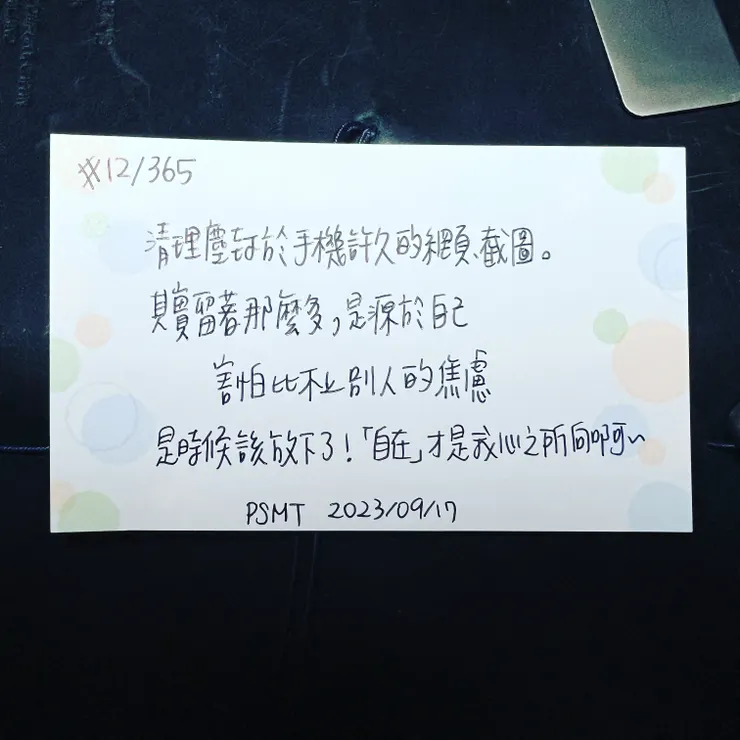 #12/365
清理塵封於手機許久的網頁截圖。
其實留著那麼多,是源於自己
害怕比不上別人的焦慮
是時候該放下了!「自在」才是我心之所向啊~
PSMT 2023/09/17